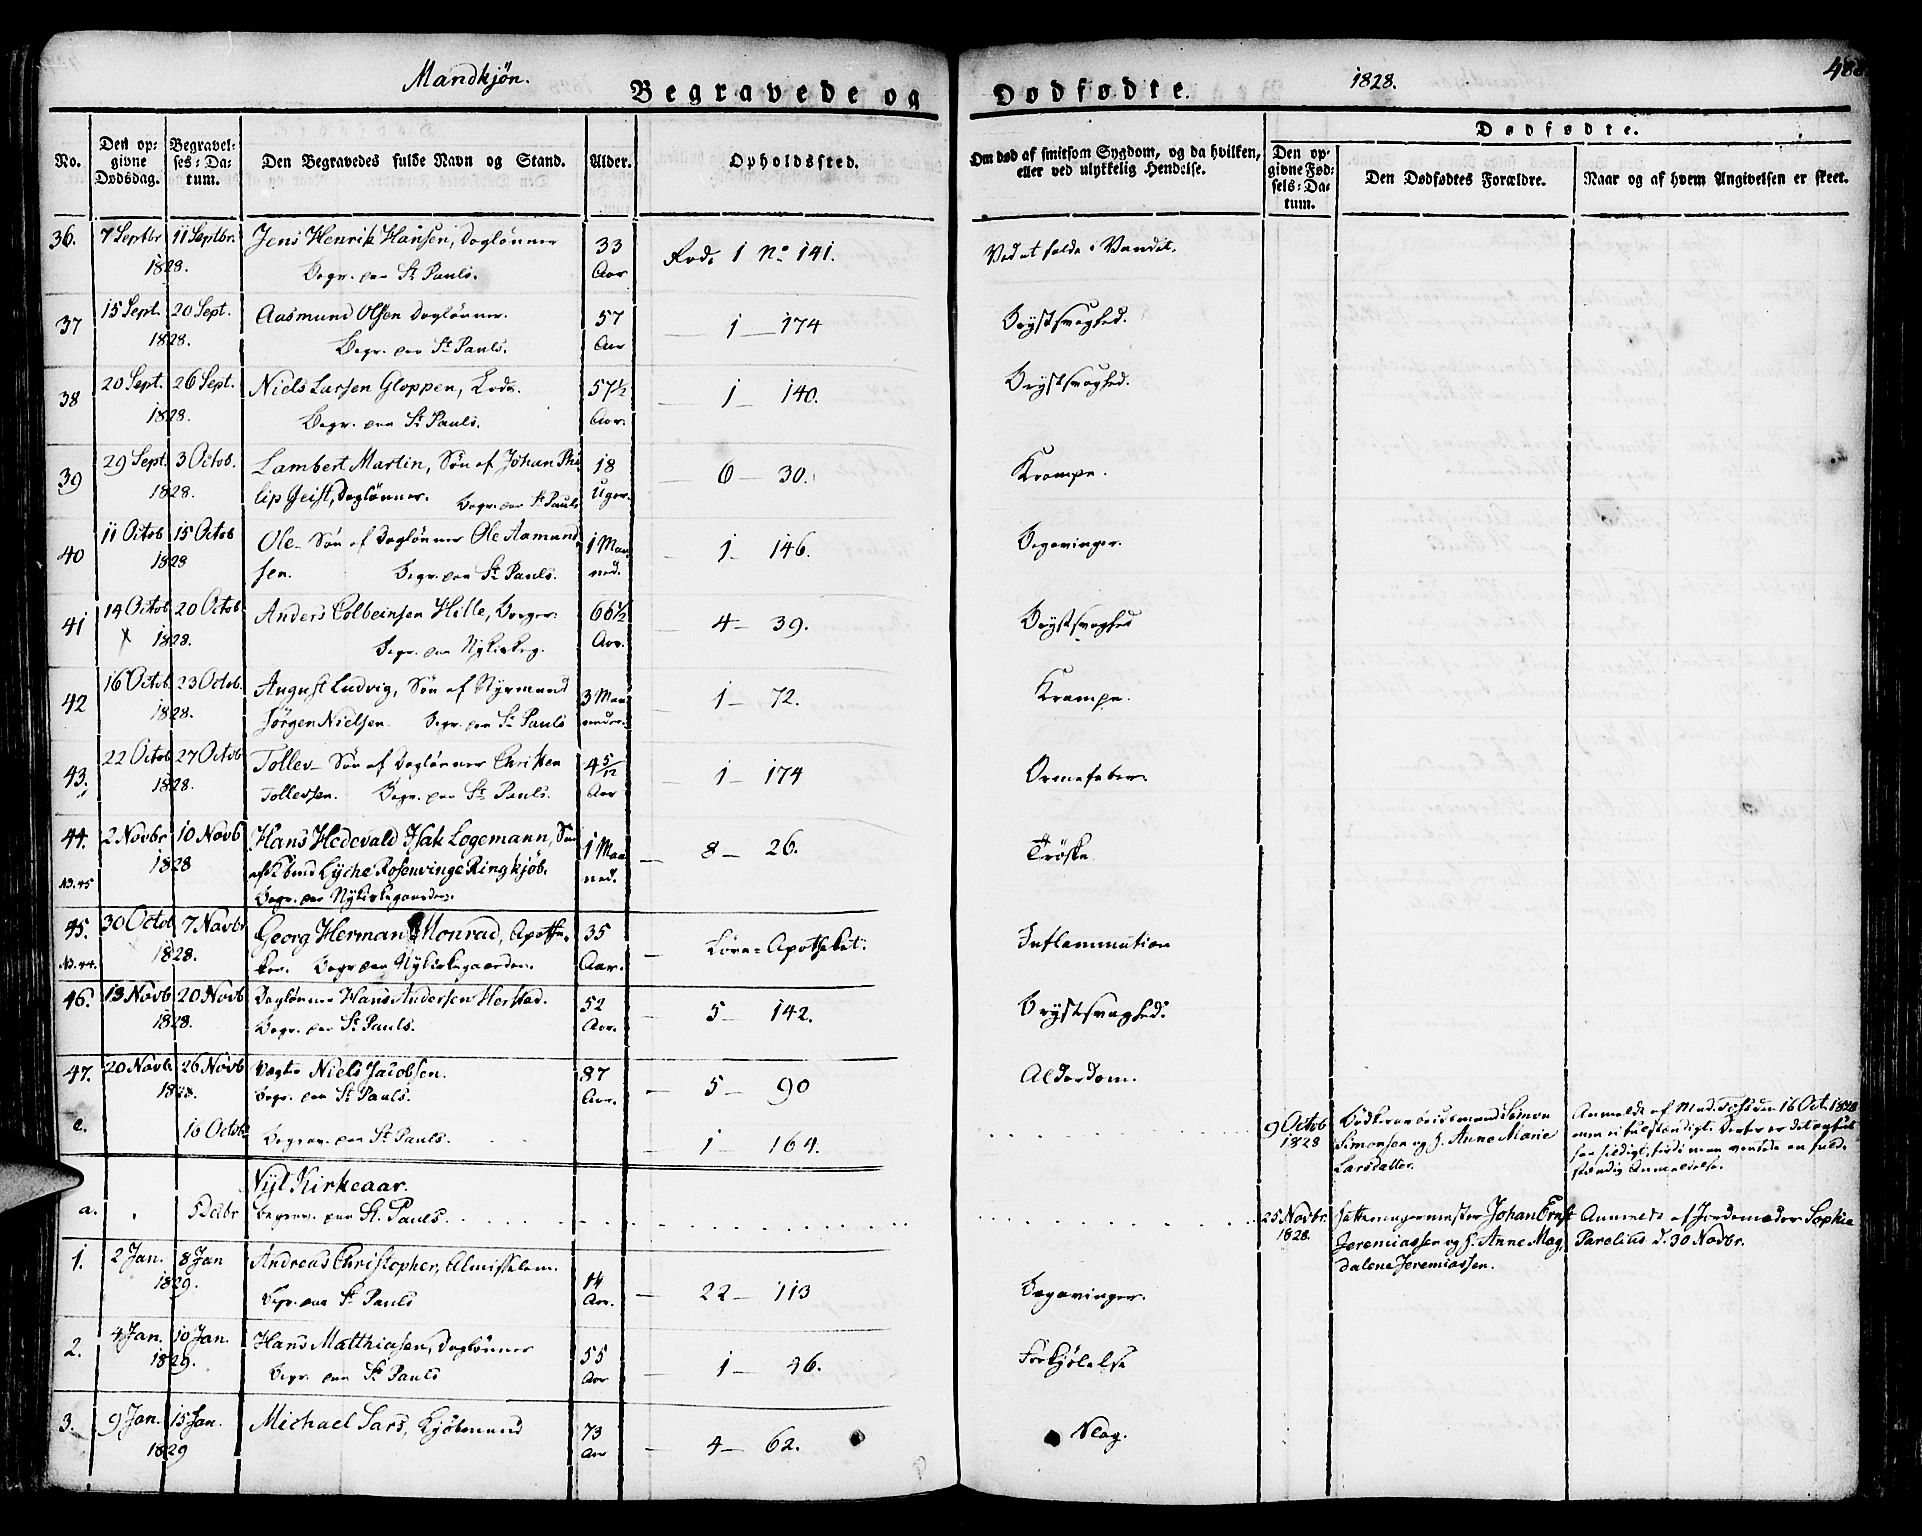 Mandkjøn.
Begravede og Dødfødte. 1828. 488
No. Den opgivne Dødsdag. Begravelses-Datum. Den Begravedes fulde Navn og Stand. Alder. Opholdssted. Om død af smitsom Sygdom, og da hvilken, eller ved ulykkelig Hendelse.
Dødfødte.
Den opgivne Fødsels-Datum. Den Dødfødtes Forældre. Naar og af hvem Angivelsen er skeet.
36. 7 Septbr 11 Septbr. Jens Henrik Hansen, Daglønner 33 Rode 1 No. 141. Ved at falde i Vandet.
1828. Begr. paa St Pauls. Aar
37 15 Sept. 20 Sept. Aasmund Olsen Daglønner. 57 — 1 — 174 Brystsvaghed.
1828. Begr. paa St Pauls. Aar
38 20 Sept. 26 Sept. Niels Larsen Gloppen, Lods. 57½ — 1 — 140. Brystsvaghed.
1828. Begr. paa St Pauls. Aar.
39 29 Sept. 3 Octob. Lambert Martin, Søn af Johan Phi 18 — 6 — 30. Krampe.
1828. lip Geist, Daglønner. Begr. paa St Pauls Uger.
40 11 Octob 15 Octob Ole- Søn af Daglønner Ole Aamund 1 Maa — 1 — 146. Begavinger.
1828 sen. Begr. paa St Pauls. ned.
41 14 Octob 20 Octob. Anders Colbeinsen Hille, Borger. 66½ — 4 — 39. Brystsvaghed
x 1828. Begr. paa Nykirkeg. Aar.
42 16 Octob. 23 Octob. August Ludvig, Søn af Styrmand 3 Maa — 1 — 72. Krampe.
1828. Jörgen Nielsen. Begr. paa St Pauls neder.
43. 22 Octob 27 Octob Tollev- Søn af Daglønner Christen 4 5/12 — 1 — 174 Ormefeber.
1828. Tollevsen. Begr. paa St Pauls. Aar
44. 2 Novbr 10 Novb Hans Hedevald Isak Logemann, Søn 1 Maa — 8 — 26. Trøske
NB. 45 1828 af Kbmd Lyche Rosenvinge Ringkjøb. ned.
Begr. paa Nykirkegaarden.
45. 30 Octob 7 Novbr Georg Herman Monrad, Apothe- 35 — Løve-Apotheket. Inflammation
NB. 44. 1828. ker. Begr paa Nykirkegaarden. Aar.
46. 13 Novb 20 Novb Daglønner Hans Andersen Herstad. 52 — 5 — 142. Brystsvaghed.
1828. Begr. paa St Pauls. Aar.
47. 20 Novb. 26 Novb Vægter Niels Jacobsen. 87 — 5 — 90 Alderdom.
1828. Begr. paa St Pauls. Aar.
e. 16 Octob. Begrav. paa St Pauls. — 1 — 164. 9 Octob 1828 Bødkerarbeidsmand Simon Simonsen og H. Anne Marie Larsdatter. Anmeldt af Mad. den 16 Oct. 1828
Nyt Kirkeaar.
a. 5 Decbr Begrav. paa St. Pauls. 25 Novbr. 1828. Johan Ernst Jeremiassen og H. Anne Magdalene Jeremiassen. Anmeldt af Jordemoder Sophie Parelius d. 30 Novbr.
1. 2 Jan. 8 Jan Andreas Christopher, Almisselem. 14 — 22 — 113 Begavinger.
1829. Begr. paa St Pauls Aar.
2. 4 Jan. 10 Jan. Hans Matthiasen, Daglønner 55 — 1 — 46. Forkjølelse
1829. Begr. paa St Pauls Aar
3. 9 Jan. 15 Jan. Michael Sars, Kjøbmand 73 — 4 — 62. Slag.
1829 Aar